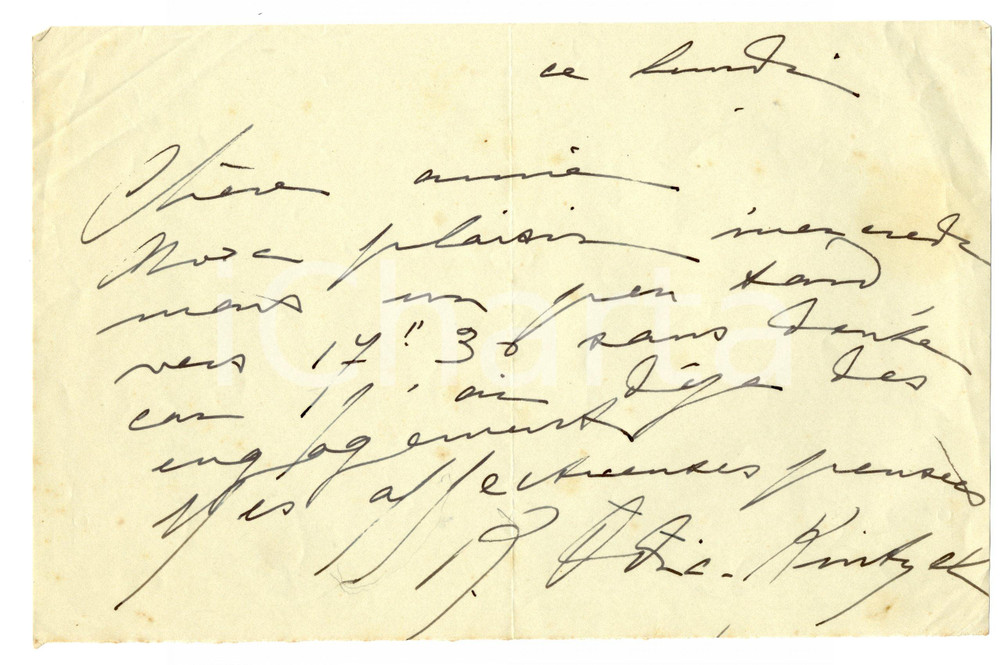 ce lundi
Chère amie
Avec plaisir mercredi
mais un peu tard
vers 17" 30 sans doute
car j'ai déjà des
engagements
Mes affectueuses pensées
iCharta